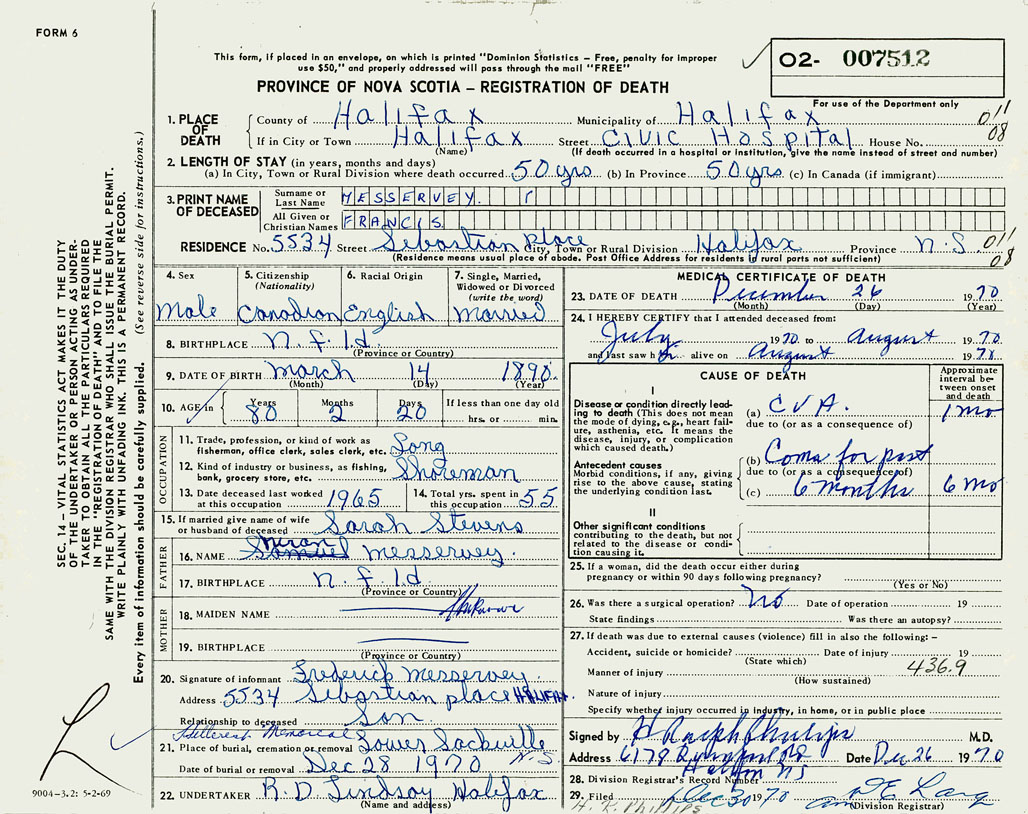 FORM 6
This form, if placed in an envelope, on which is printed "Dominion Statistics - Free, penalty for improper
use $50," and properly addressed will pass through the mail "FREE"
02- 007512
PROVINCE OF NOVA SCOTIA - REGISTRATION OF DEATH
For use of the Department only
1. PLACE OF DEATH
County of Halifax Municipality of Halifax 011
If in City or Town Halifax Street Civic Hospital House No. 08
(Name) (If death occurred in a hospital or institution, give the name instead of street and number)
2. LENGTH OF STAY (in years, months and days)
(a) In City, Town or Rural Division where death occurred 50 yrs (b) In Province 50 yrs (c) In Canada (if immigrant)
3. PRINT NAME OF DECEASED
Surname or Last Name MESSERVEY.
All Given or Christian Names FRANCIS
RESIDENCE No. 5534 Street Sebastian place City, Town or Rural Division Halifax Province N.S 011
(Residence means usual place of abode. Post Office Address for residents in rural parts not sufficient) 08
4. Sex
Male
5. Citizenship
(Nationality)
Canadian
6. Racial Origin
English
7. Single, Married,
Widowed or Divorced
(write the word)
Married
8. BIRTHPLACE n.f.l.d.
(Province or Country)
9. DATE OF BIRTH March 14 1890.
(Month) (Day) (Year)
10. AGE in Years Months Days If less than one day old
80 2 20 hrs. or min.
OCCUPATION
11. Trade, profession, or kind of work as
fisherman, office clerk, sales clerk, etc. Long
12. Kind of industry or business, as fishing,
bank, grocery store, etc. Shoreman
13. Date deceased last worked
at this occupation 1965
14. Total yrs. spent in
this occupation 55
15. If married give name of wife
or husband of deceased Sarah Stevens
FATHER
16. NAME Samuel Messervey.
17. BIRTHPLACE n.f.l.d
(Province or Country)
MOTHER
18. MAIDEN NAME Unknown
19. BIRTHPLACE
(Province or Country)
20. Signature of informant Frederick Messervey.
Address 5534 Sebastian place HALIFAX.
Relationship to deceased Son.
Hillcrest Memorial
21. Place of burial, cremation or removal Lower Sackville
N.S
Date of burial or removal Dec 28 1970
22. UNDERTAKER R.D. Lindsay Halifax
(Name and address)
MEDICAL CERTIFICATE OF DEATH
23. DATE OF DEATH December 26 1970
(Month) (Day) (Year)
24. I HEREBY CERTIFY that I attended deceased from:
July 1970 to August 1970
and last saw h alive on August 197
CAUSE OF DEATH
Approximate
interval be-
tween onset
and death
I
Disease or condition directly lead-
ing to death (This does not mean
the mode of dying, e.g., heart fail-
ure, asthenia, etc. It means the
disease, injury, or complication
which caused death.)
(a) CVA. 1 mo
due to (or as a consequence of)
Antecedent causes
Morbid conditions, if any, giving
rise to the above cause, stating
the underlying condition last.
(b) Coma for past
due to (or as a consequence of)
(c) 6 months 6 mo
II
Other significant conditions
contributing to the death, but not
related to the disease or condi-
tion causing it.
25. If a woman, did the death occur either during
pregnancy or within 90 days following pregnancy?
(Yes or No)
26. Was there a surgical operation? No Date of operation 19
State findings Was there an autopsy?
27. If death was due to external causes (violence) fill in also the following: -
Accident, suicide or homicide? Date of injury 19
(State which)
Manner of injury 436.9
(How sustained)
Nature of injury
Specify whether injury occurred in industry, in home, or in public place
Signed by H Ralph Phillips M.D.
Address 6179 Date Dec 26 1970
28. Division Registrar's Record Number
29. Filed Dec 30 1970
H. R. Phillips (Division Registrar)
SEC. 14 - VITAL STATISTICS ACT MAKES IT THE DUTY
OF THE UNDERTAKER OR PERSON ACTING AS UNDER-
TAKER TO OBTAIN ALL THE PARTICULARS REQUIRED
IN THE "REGISTRATION OF DEATH" AND TO FILE THE
SAME WITH THE DIVISION REGISTRAR WHO SHALL ISSUE THE BURIAL PERMIT.
WRITE PLAINLY WITH UNFADING INK. THIS IS A PERMANENT RECORD.
Every item of information should be carefully supplied. (See reverse side for instructions.)
9004-3.2: 5-2-69